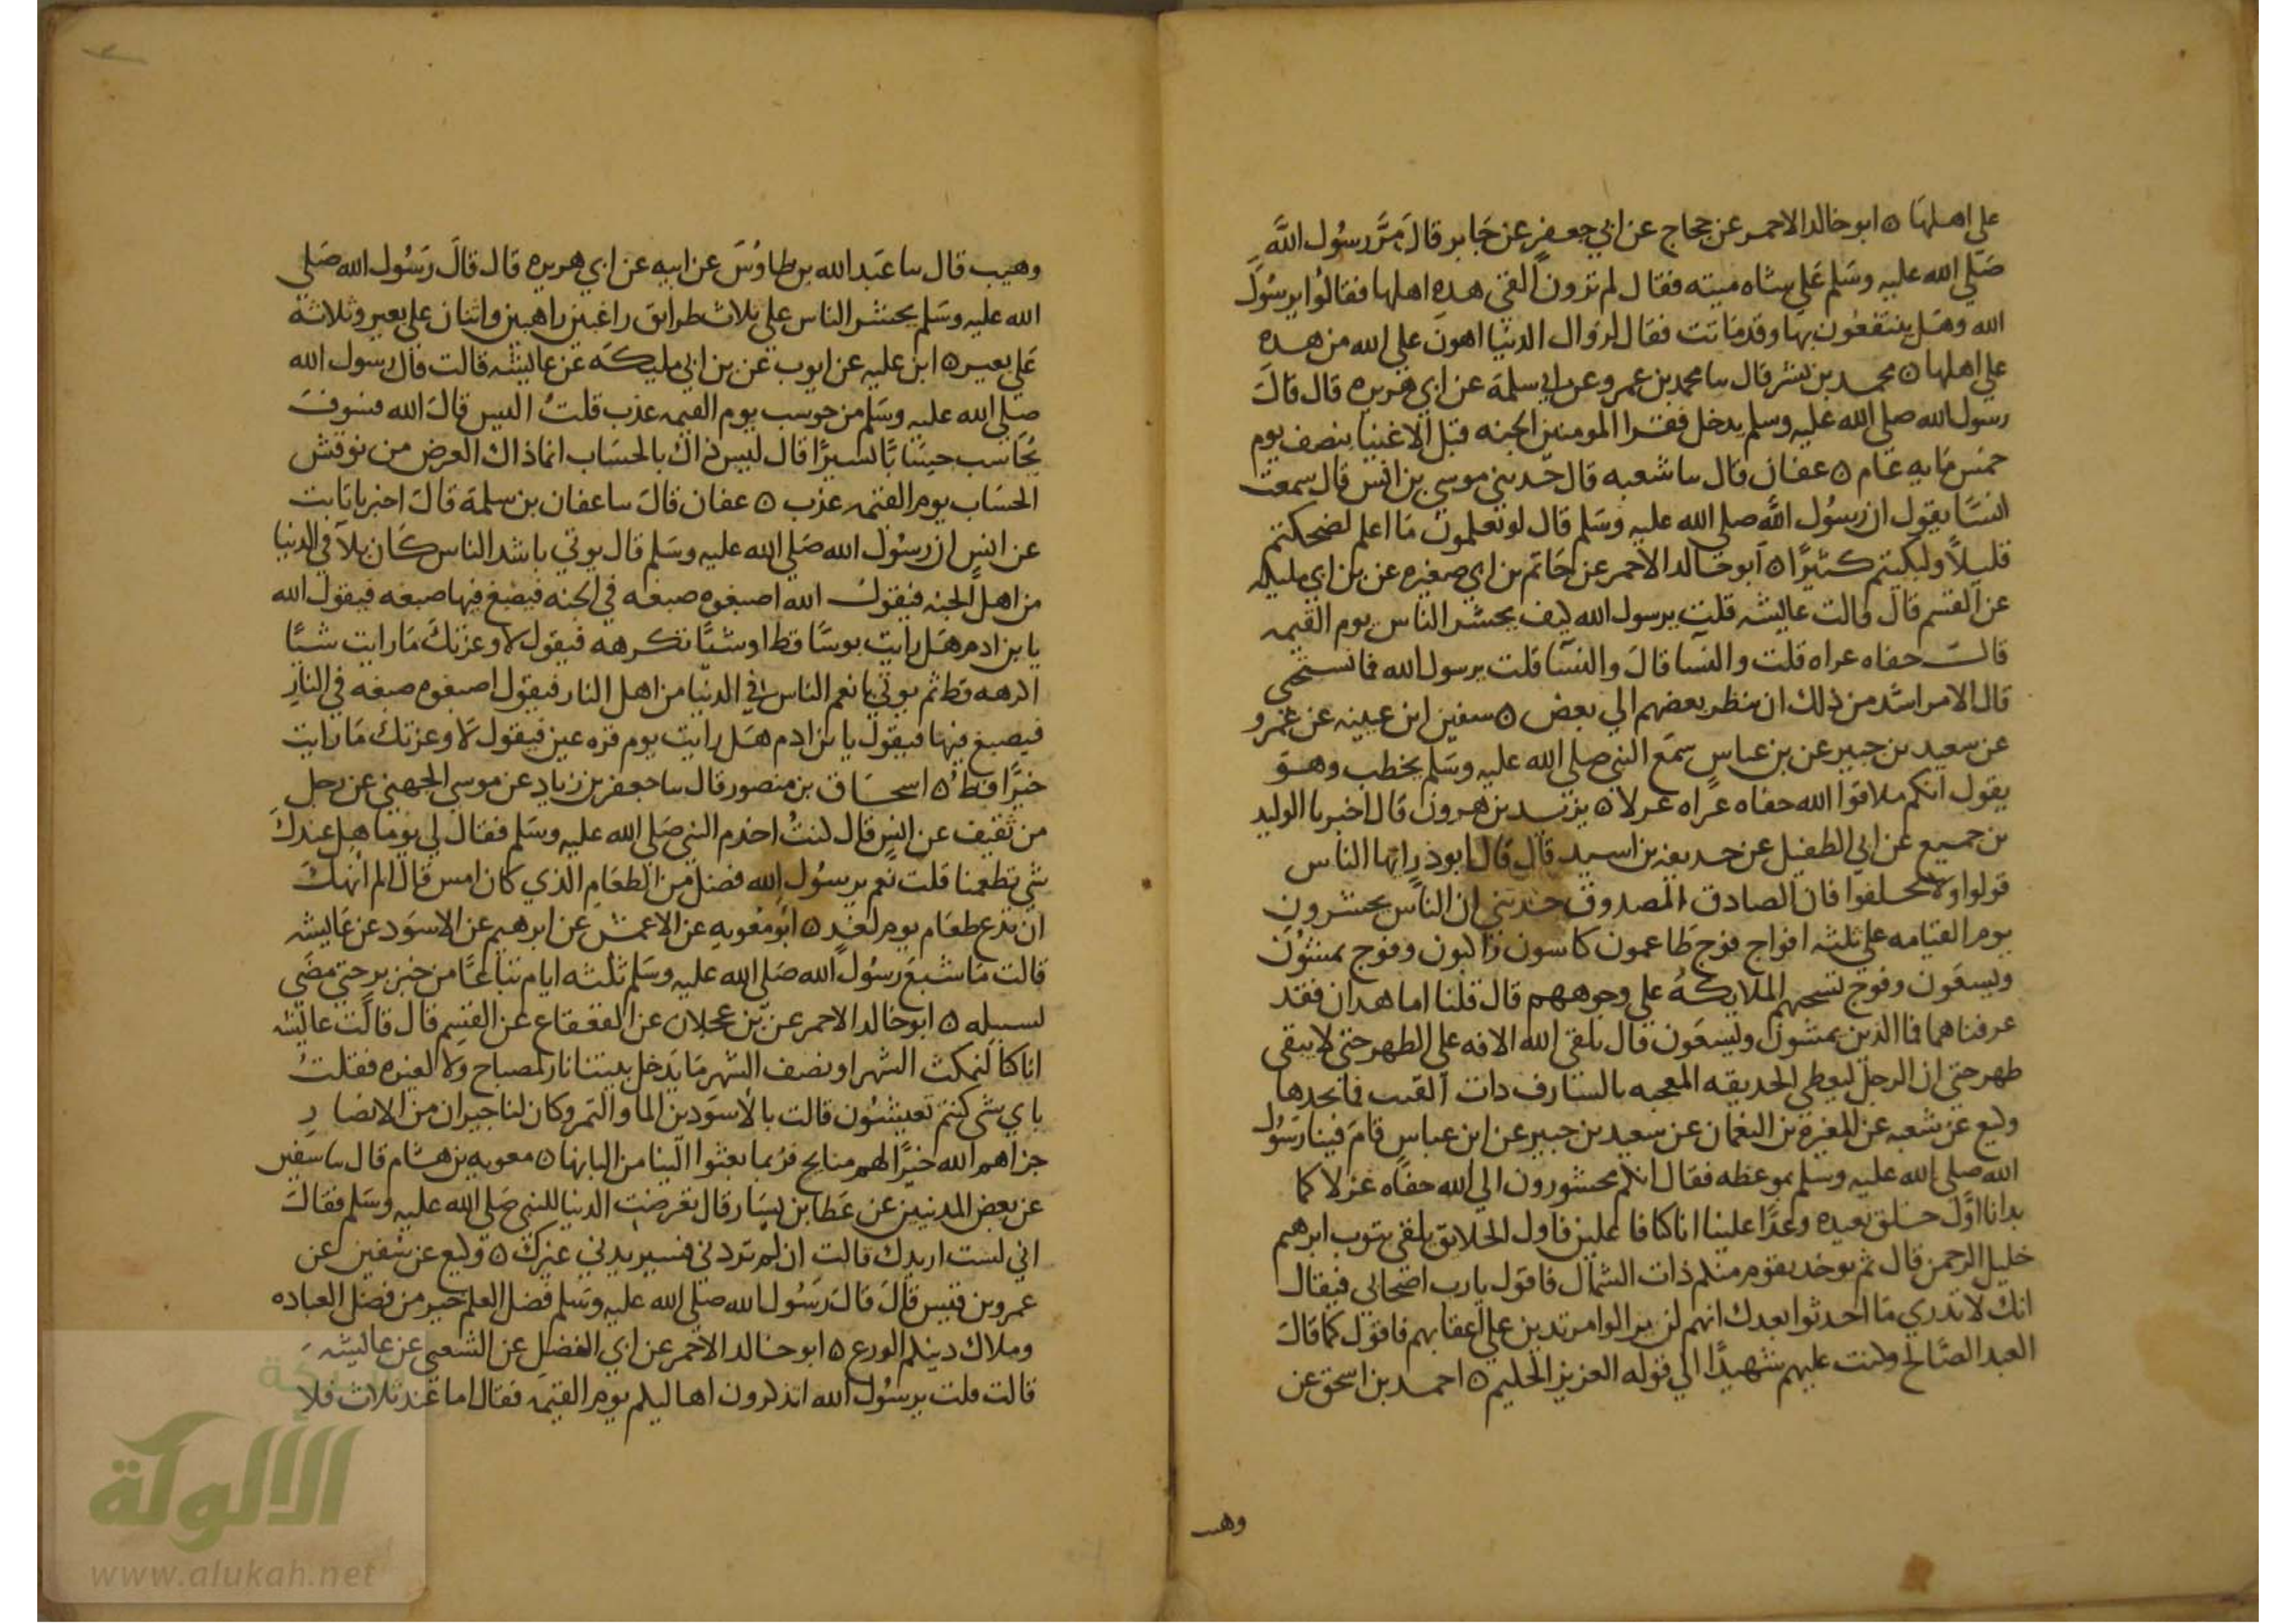 علي اهلها ٥ ابو خالد الاحمر عن حجاج عن ابي جعفر عن جابر قال مر رسول الله
صلي الله عليه وسلم علي شاه ميته فقال لم ترون القي هده اهلها فقالوا يرسول
الله وهل ينتفعون بها وقد ماتت فقال لزوال الدنيا اهون علي الله من هده
علي اهلها ٥ محمد بن بشر قال سا محمد بن عمرو عن ابي سلمة عن ابي هريره قال قال
رسول الله صلي الله عليه وسلم يدخل فقرا المومنين الجنه قبل الاغنيا بنصف يوم
خمس مايه عام ٥ عفان قال سا شعبه قال حدثني موسي بن انس قال سمعت
انسا يقول ان رسول الله صلي الله عليه وسلم قال لو تعلمون ما اعلم لضحكتم
قليلا ولبكيتم كثيرا ٥ ابو خالد الاحمر عن حاتم بن ابي صغيره عن بن ابي مليكه
عن القسم قال قالت عايشه قلت يرسول الله كيف يحشر الناس يوم القيمه
قالت حفاه عراه قلت والنسا قال والنسا قلت يرسول الله فما نستحي
قال الامر اشد من ذلك ان ينظر بعضهم الي بعض ٥ سفين ابن عيينه عن عمرو
عن سعيد بن جبير عن بن عباس سمع النبي صلي الله عليه وسلم يخطب وهو
يقول انكم ملاقوا الله حفاه عراه غرلا ٥ يزيد بن هرون قال اخبرنا الوليد
بن جميع عن ابي الطفيل عن حديفه بن اسيد قال قال ابو ذر ايها الناس
قولوا ولا تحلفوا فان الصادق المصدوق حدثني ان الناس يحشرون
يوم القيامه علي ثلثه افواج فوج طاعمون كاسون راكبون وفوج يمشون
ويسعون وفوج تسحبهم الملايكة علي وجوههم قال قلنا اما هدان فقد
عرفناهما فما الذين يمشون ويسعون قال يلقي الله الافه علي الظهر حتي لا يبقي
ظهر حتي ان الرجل ليعطي الحديقه المعجبه بالشارف دات القتب فما يجدها
وكيع عن شعبه عن المغيرة بن النعمان عن سعيد بن جبير عن ابن عباس قام فينا رسول
الله صلي الله عليه وسلم بموعظه فقال انكم محشورون الي الله حفاه غرلا كما
بدانا اول خلق نعيده وعدا علينا انا كنا فاعلين فاول الخلايق يلقي بثوب ابرهيم
خليل الرحمن قال ثم يوخد بقوم منكم ذات الشمال فاقول يارب اصحابي فيقال
انك لا تدري ما احدثوا بعدك انهم لن يزالوا مرتدين علي اعقابهم فاقول كما قال
العبد الصالح وكنت عليهم شهيدا الي قوله العزيز الحكيم ٥ احمد بن اسحق عن
وهيب
وهيب قال سا عبد الله بن طاوس عن ابيه عن ابي هريره قال قال رسول الله صلي
الله عليه وسلم يحشر الناس علي ثلاث طرايق راغبين راهبين واثنان علي بعير وثلاثة
علي بعير ٥ ابن عليه عن ايوب عن بن ابي مليكه عن عايشه قالت قال رسول الله
صلي الله عليه وسلم من حوسب يوم القيمه عذب قلت اليس قال الله فسوف
يحاسب حسابا يسيرا قال ليس ذاك بالحساب انما ذاك العرض من نوقش
الحساب يوم القيمه عذب ٥ عفان قال سا عفان بن سلمة قال اخبرنا ثابت
عن انس ان رسول الله صلي الله عليه وسلم قال يوتي باشد الناس كان بلآ في الدنيا
من اهل الجنه فيقول الله اصبغوه صبغه في الجنه فيصبغ فيها صبغه فيقول الله
يا بن ادم هل رايت بوسا قط او شيا تكرهه فيقول لا وعزتك ما رايت شيا
اكرهه قط ثم يوتي بانعم الناس في الدنيا من اهل النار فيقول اصبغوه صبغه في النار
فيصبغ فيها فيقول يا بن ادم هل رايت يوم قره عين فيقول لا وعزتك ما رايت
خيرا قط ٥ اسحاق بن منصور قال سا جعفر بن زياد عن موسي الجهني عن رجل
من ثقيف عن انس قال كنت اخدم النبي صلي الله عليه وسلم فقال لي يوما هل عندك
شي تطعمنا قلت نعم يرسول الله فضل من الطعام الذي كان امس قال الم انهك
ان تدع طعام يوم لغد ٥ ابو معويه عن الاعمش عن ابرهيم عن الاسود عن عايشه
قالت ما شبع رسول الله صلي الله عليه وسلم ثلثه ايام تباعا من خبز بر حتي مضي
لسبيله ٥ ابو خالد الاحمر عن بن عجلان عن القعقاع عن القسم قال قالت عايشه
انا كنا لنمكث الشهر او نصف الشهر ما يدخل بيتنا نار لمصباح ولا لغيره فقلت
باي شي كنتم تعيشون قالت بالاسودين الما والتمر وكان لنا جيران من الانصار
جزاهم الله خيرا لهم منايح فربما بعثوا الينا من البانها ٥ معويه بن هشام قال سا سفين
عن بعض المدنيين عن عطا بن يسار قال تعرضت الدنيا للنبي صلي الله عليه وسلم فقال
اني لست اريدك قالت ان لم تردني فسيريدني غيرك ٥ وكيع عن سفين عن
عمرو بن قيس قال قال رسول الله صلي الله عليه وسلم فضل العلم خير من فضل العباده
وملاك دينكم الورع ٥ ابو خالد الاحمر عن ابي الفضل عن الشعبي عن عايشه
قالت قلت يرسول الله اتذكرون اهاليكم يوم القيمه فقال اما عند ثلاث فلا
شبكة
الألوكة
www.alukah.net